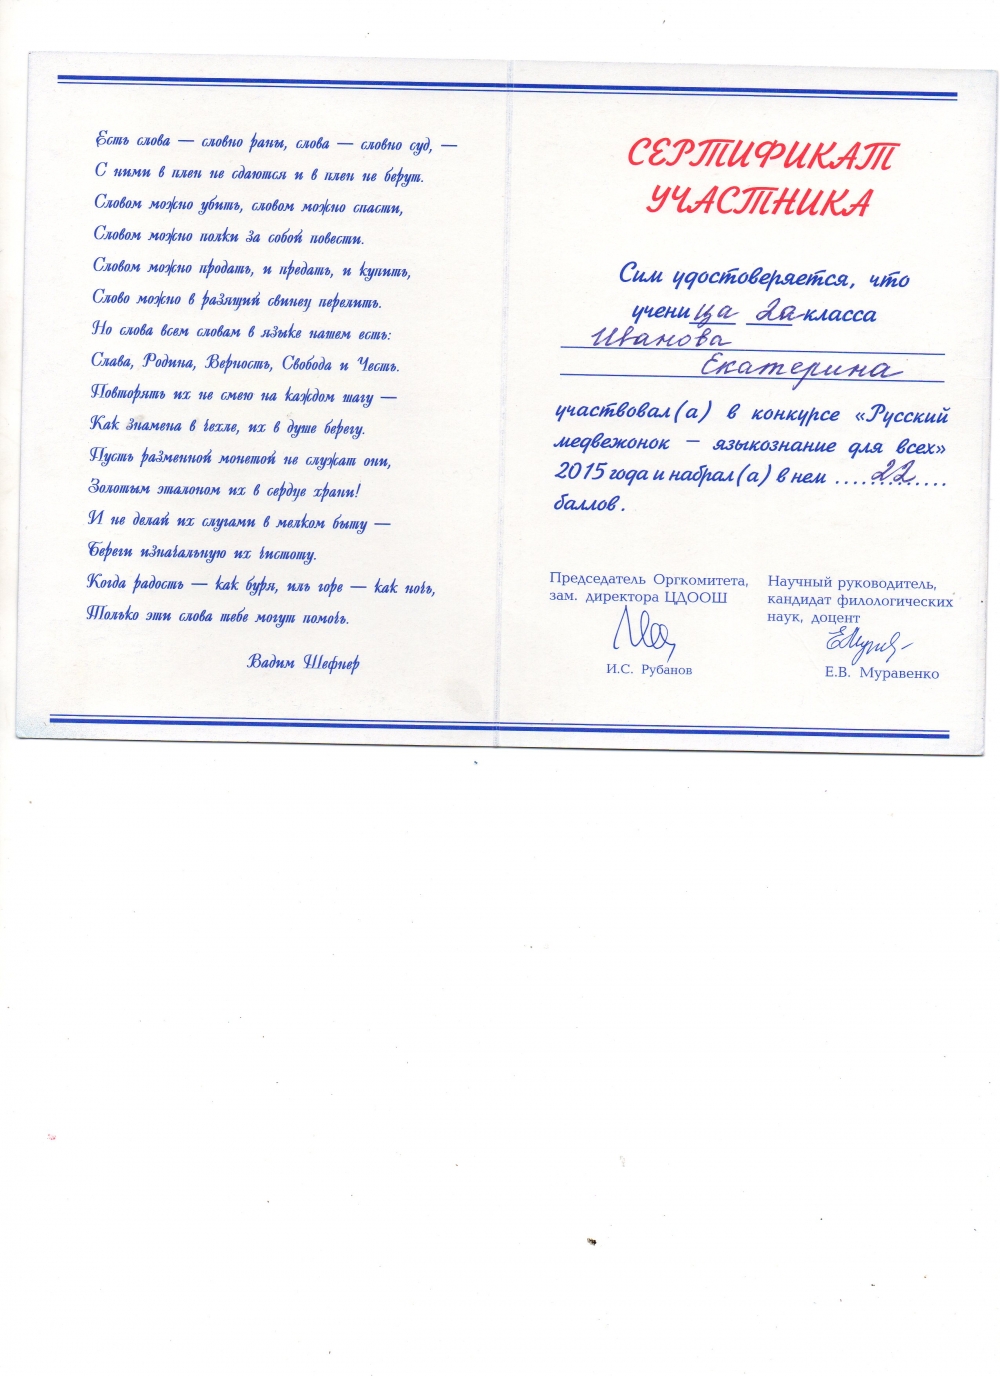 Есть слова — словно раны, слова — словно суд, —
С ними в плен не сдаются и в плен не берут.
Словом можно убить, словом можно спасти,
Словом можно полки за собой повести.
Словом можно продать, и предать, и купить,
Слово можно в разящий свинец перелить.
Но слова всем словам в языке нашем есть:
Слава, Родина, Верность, Свобода и Честь.
Повторять их не смею на каждом шагу —
Как знамена в чехле, их в душе берегу.
Пусть разменной монетой не служат они,
Золотым эталоном их в сердце храни!
И не делай их слугами в мелком быту —
Береги изначальную их чистоту.
Когда радость — как буря, иль горе — как ночь,
Только эти слова тебе могут помочь.
Вадим Шефнер
СЕРТИФИКАТ
УЧАСТНИКА
Сим удостоверяется, что
учени ца 2а класса
Иванова
Екатерина
участвовал(а) в конкурсе «Русский
медвежонок – языкознание для всех»
2015 года и набрал(а) в нем ....22....
баллов.
Председатель Оргкомитета,
зам. директора ЦДООШ
И.С. Рубанов
Научный руководитель,
кандидат филологических
наук, доцент
Е.В. Муравенко